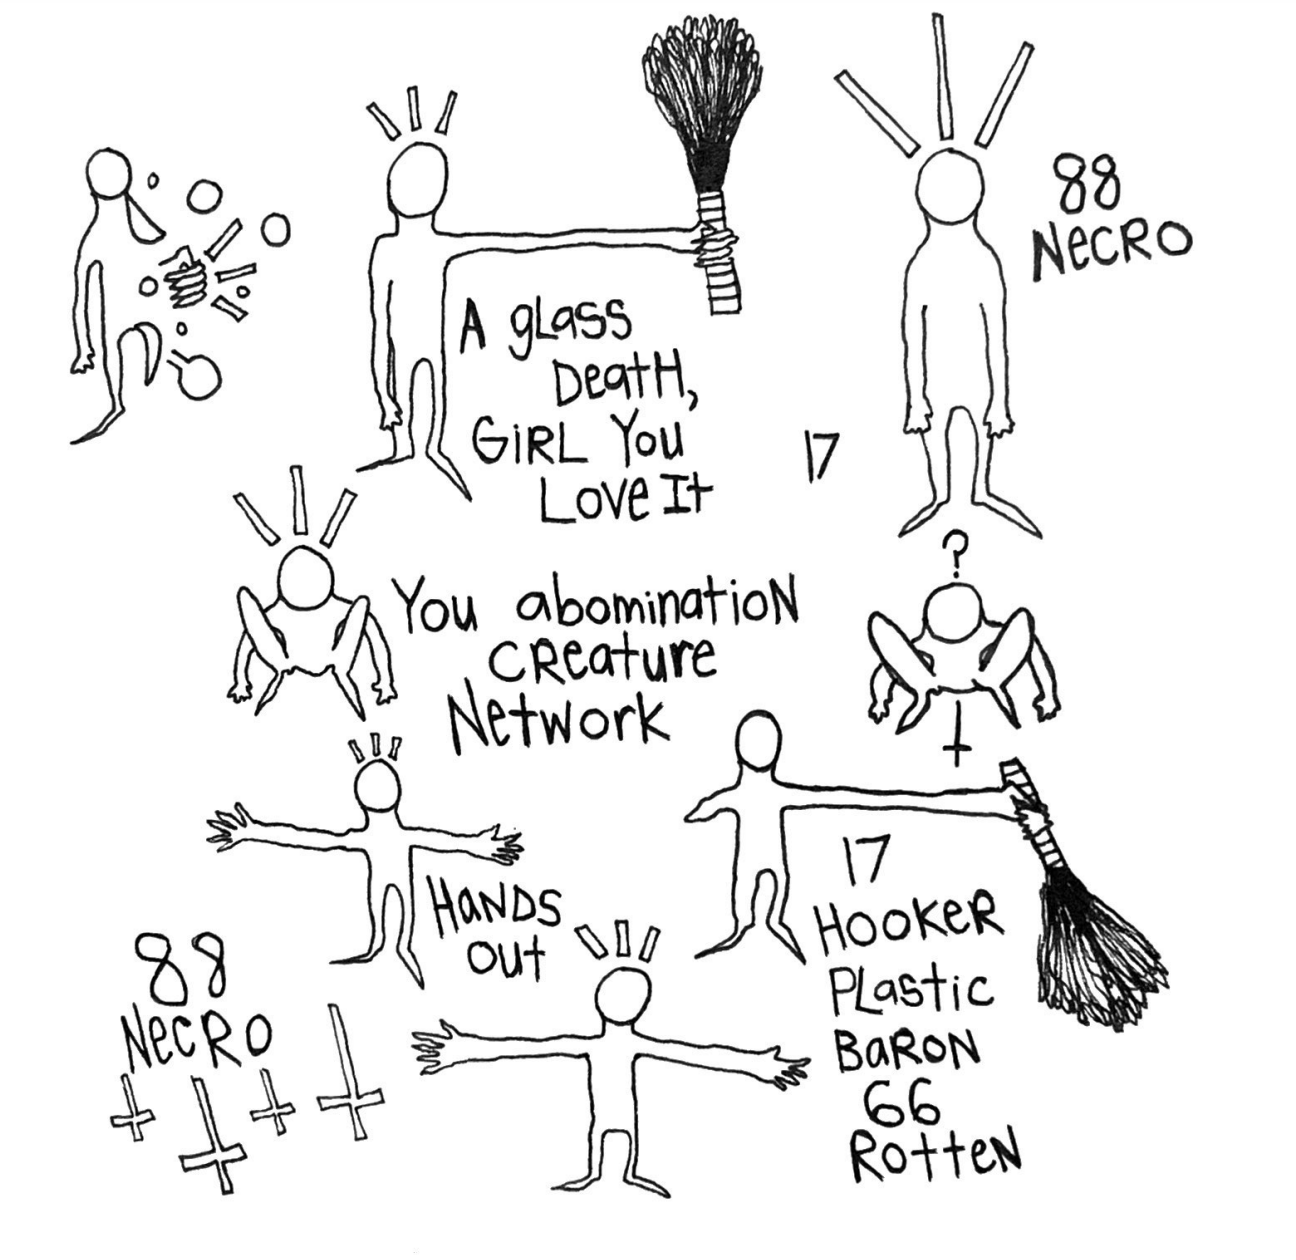 88
NecRO
A gLass
Death,
GiRL You
Love It
17
?
You abominatioN
CReature
Network
17
HOOKeR
PLastic
BaRON
66
RotteN
HaNDS
out
88
NecRO